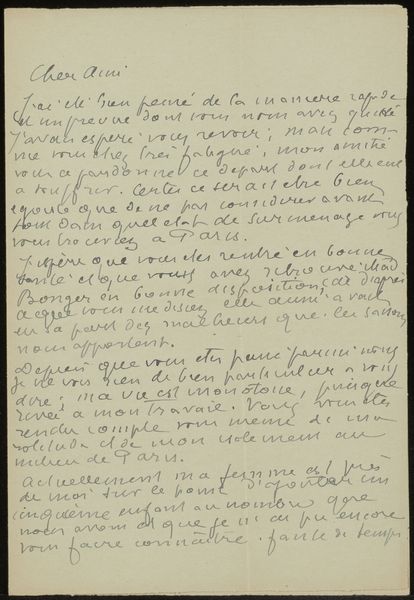 Cher Ami
J'ai été bien peiné de la manière rapide
et imprévue dont vous nous avez quitté
J'avais espéré vous revoir ; mais com-
me vous étiez très fatigué, mon amitié
vous a pardonné ce départ dont elle eut
a souffrir. Certes ce serait être bien
egoiste que de ne pas considérer avant
tout dans quel etat de surmenage vous
vous trouviez a Paris.
J'espère que vous etes rentré en bonne
santé et que vous avez retrouvé Mad
Bonger en bonne disposition, car d'après
ce que vous me disiez elle aussi avait
eu sa part des malheurs que les saisons
nous apportent.
Depuis que vous etes parmi nous
je ne vois rien de bien particulier a vous
dire ; ma vie est monotone, puisque
rivée a mon travail. Vous vous etes
rendu compte vous meme de ma
solitude et de mon isolement au
milieu de Paris.
Actuellement ma femme est près
de moi sur le point d'ajouter un
cinquième enfant au nombre que
nous avons et que je n'ai pu encore
vous faire connaître, faute de temps